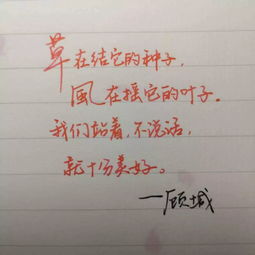 草在结它的种子，
風在摇它的叶子。
我们站着，不说话，
就十分美好。
——顾城